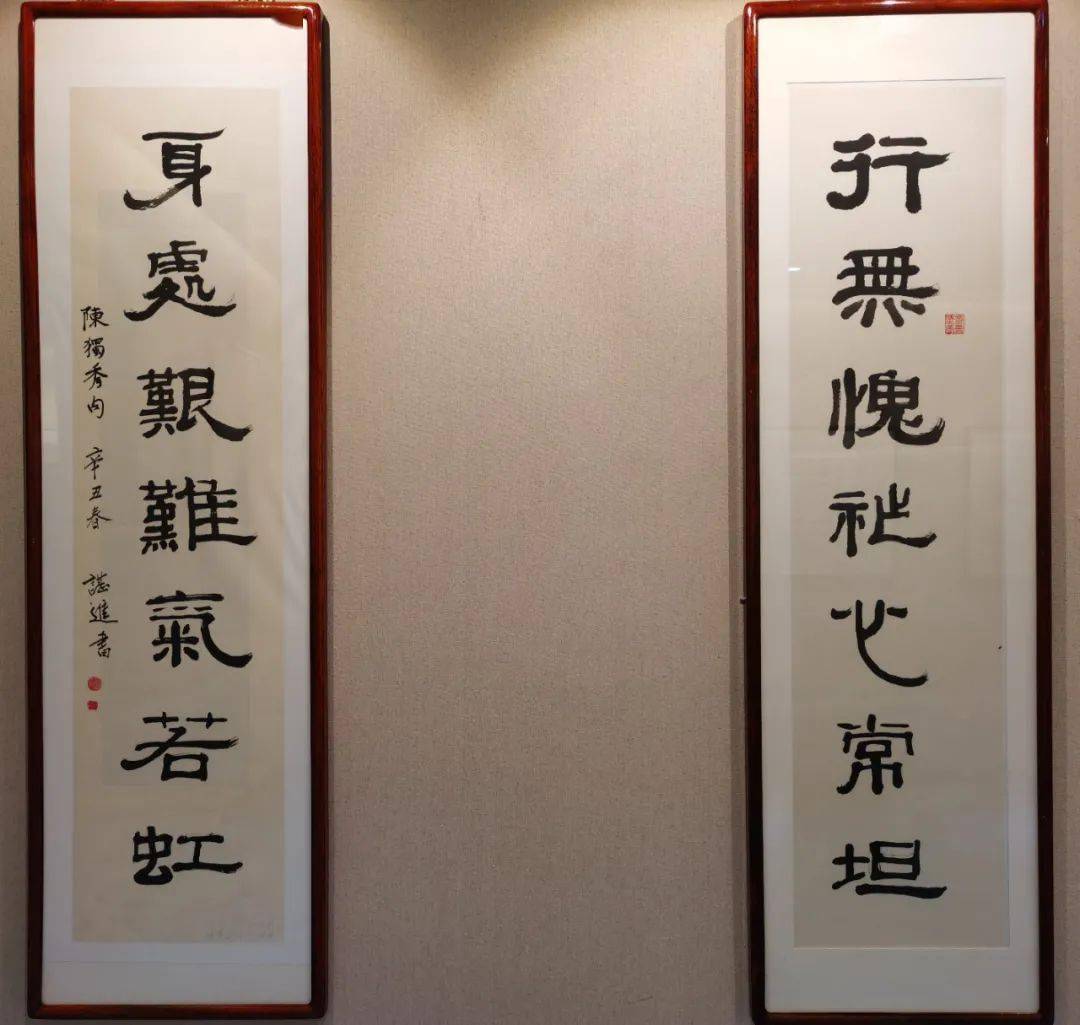 行無愧祚心常坦
身處艱難氣若虹
陳獨秀句 辛丑春 諶進書